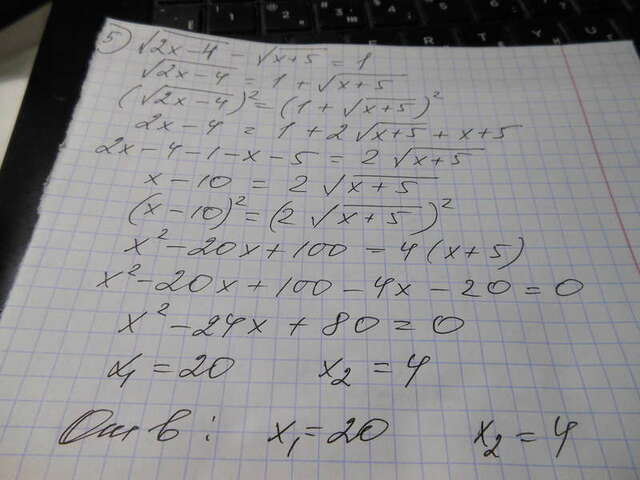 5) √(2x-4) - √(x+5) = 1
√(2x-4) = 1 + √(x+5)
(√(2x-4))² = (1 + √(x+5))²
2x-4 = 1 + 2√(x+5) + x+5
2x-4-1-x-5 = 2√(x+5)
x-10 = 2√(x+5)
(x-10)² = (2√(x+5))²
x²-20x+100 = 4(x+5)
x²-20x+100-4x-20=0
x²-24x+80=0
x₁=20 x₂=4
Отв: x₁=20 x₂=4